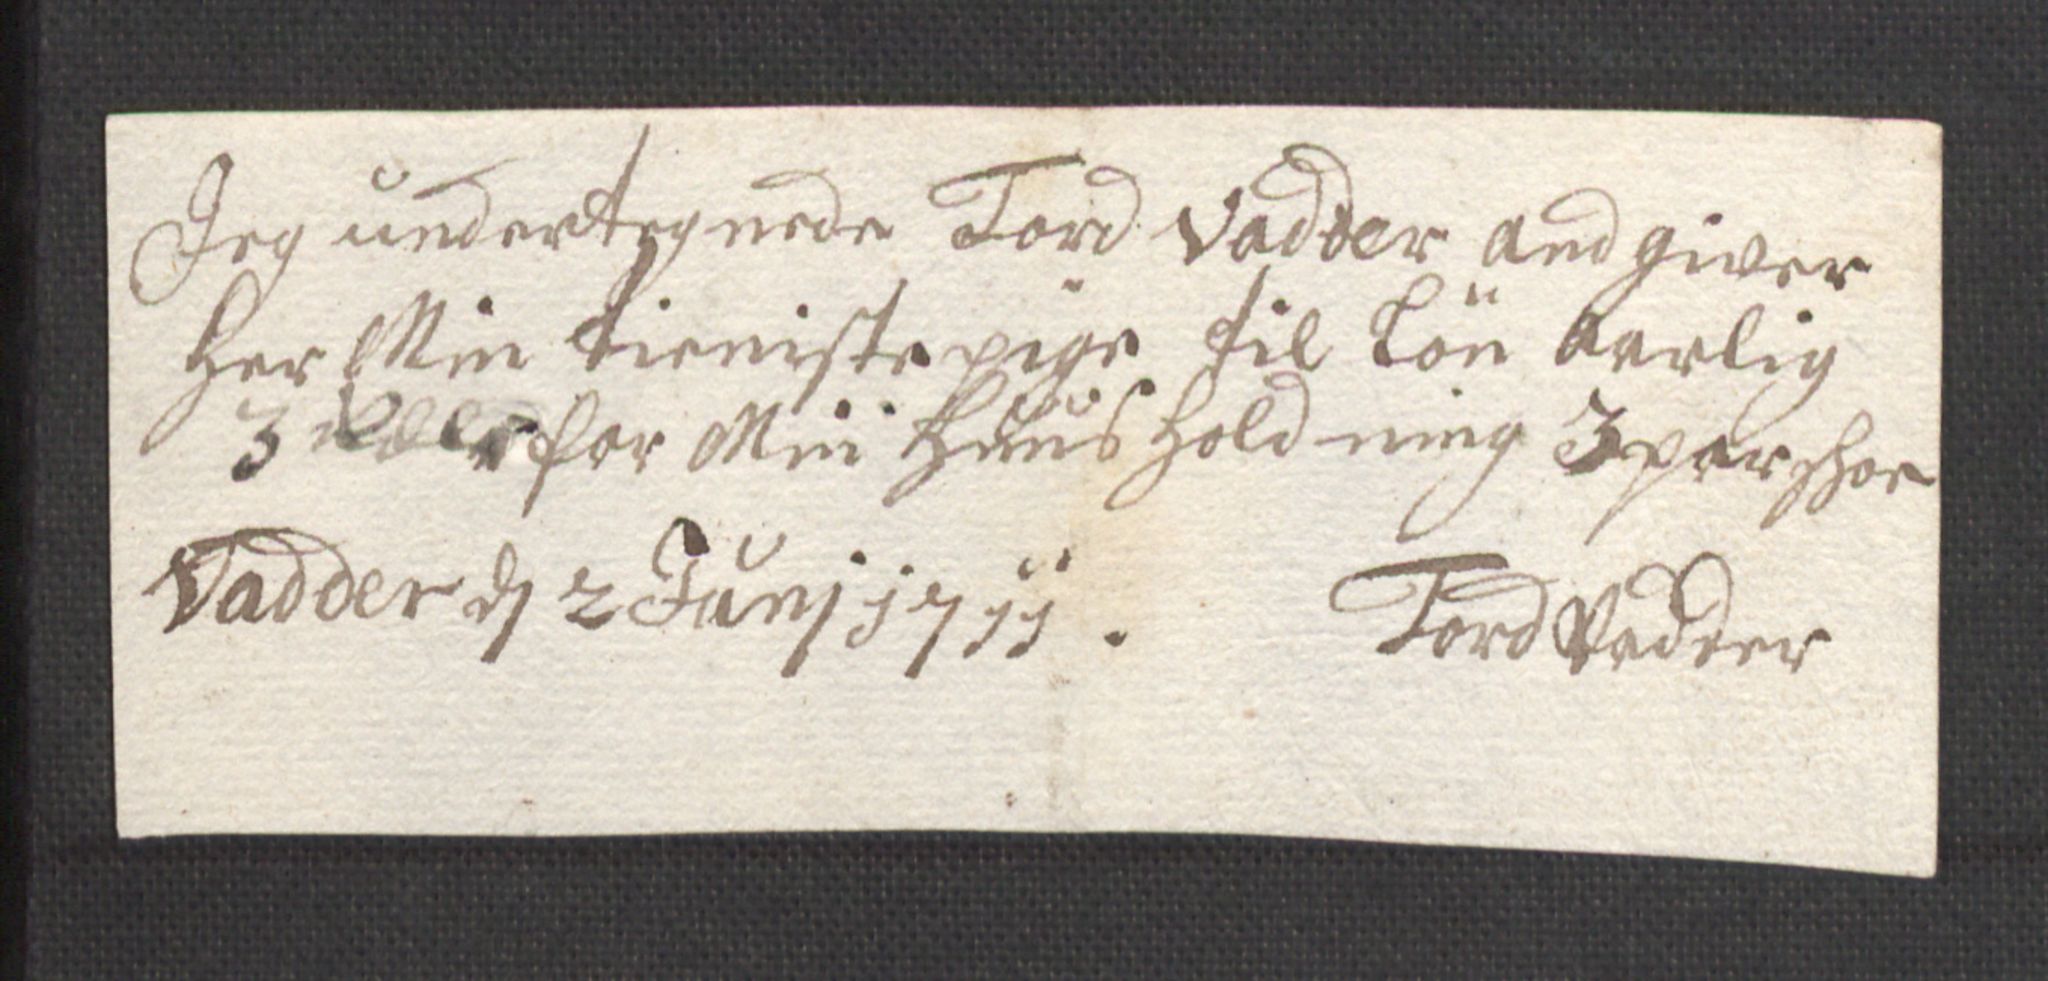 Jeg undertegnede Tord Vadder and giver
her Min tieniste pige til Lön Aarlig
3 for Min Huus hold ning 3 par shoe
Vadder d 2 Junj 1711.
Tord Vadder